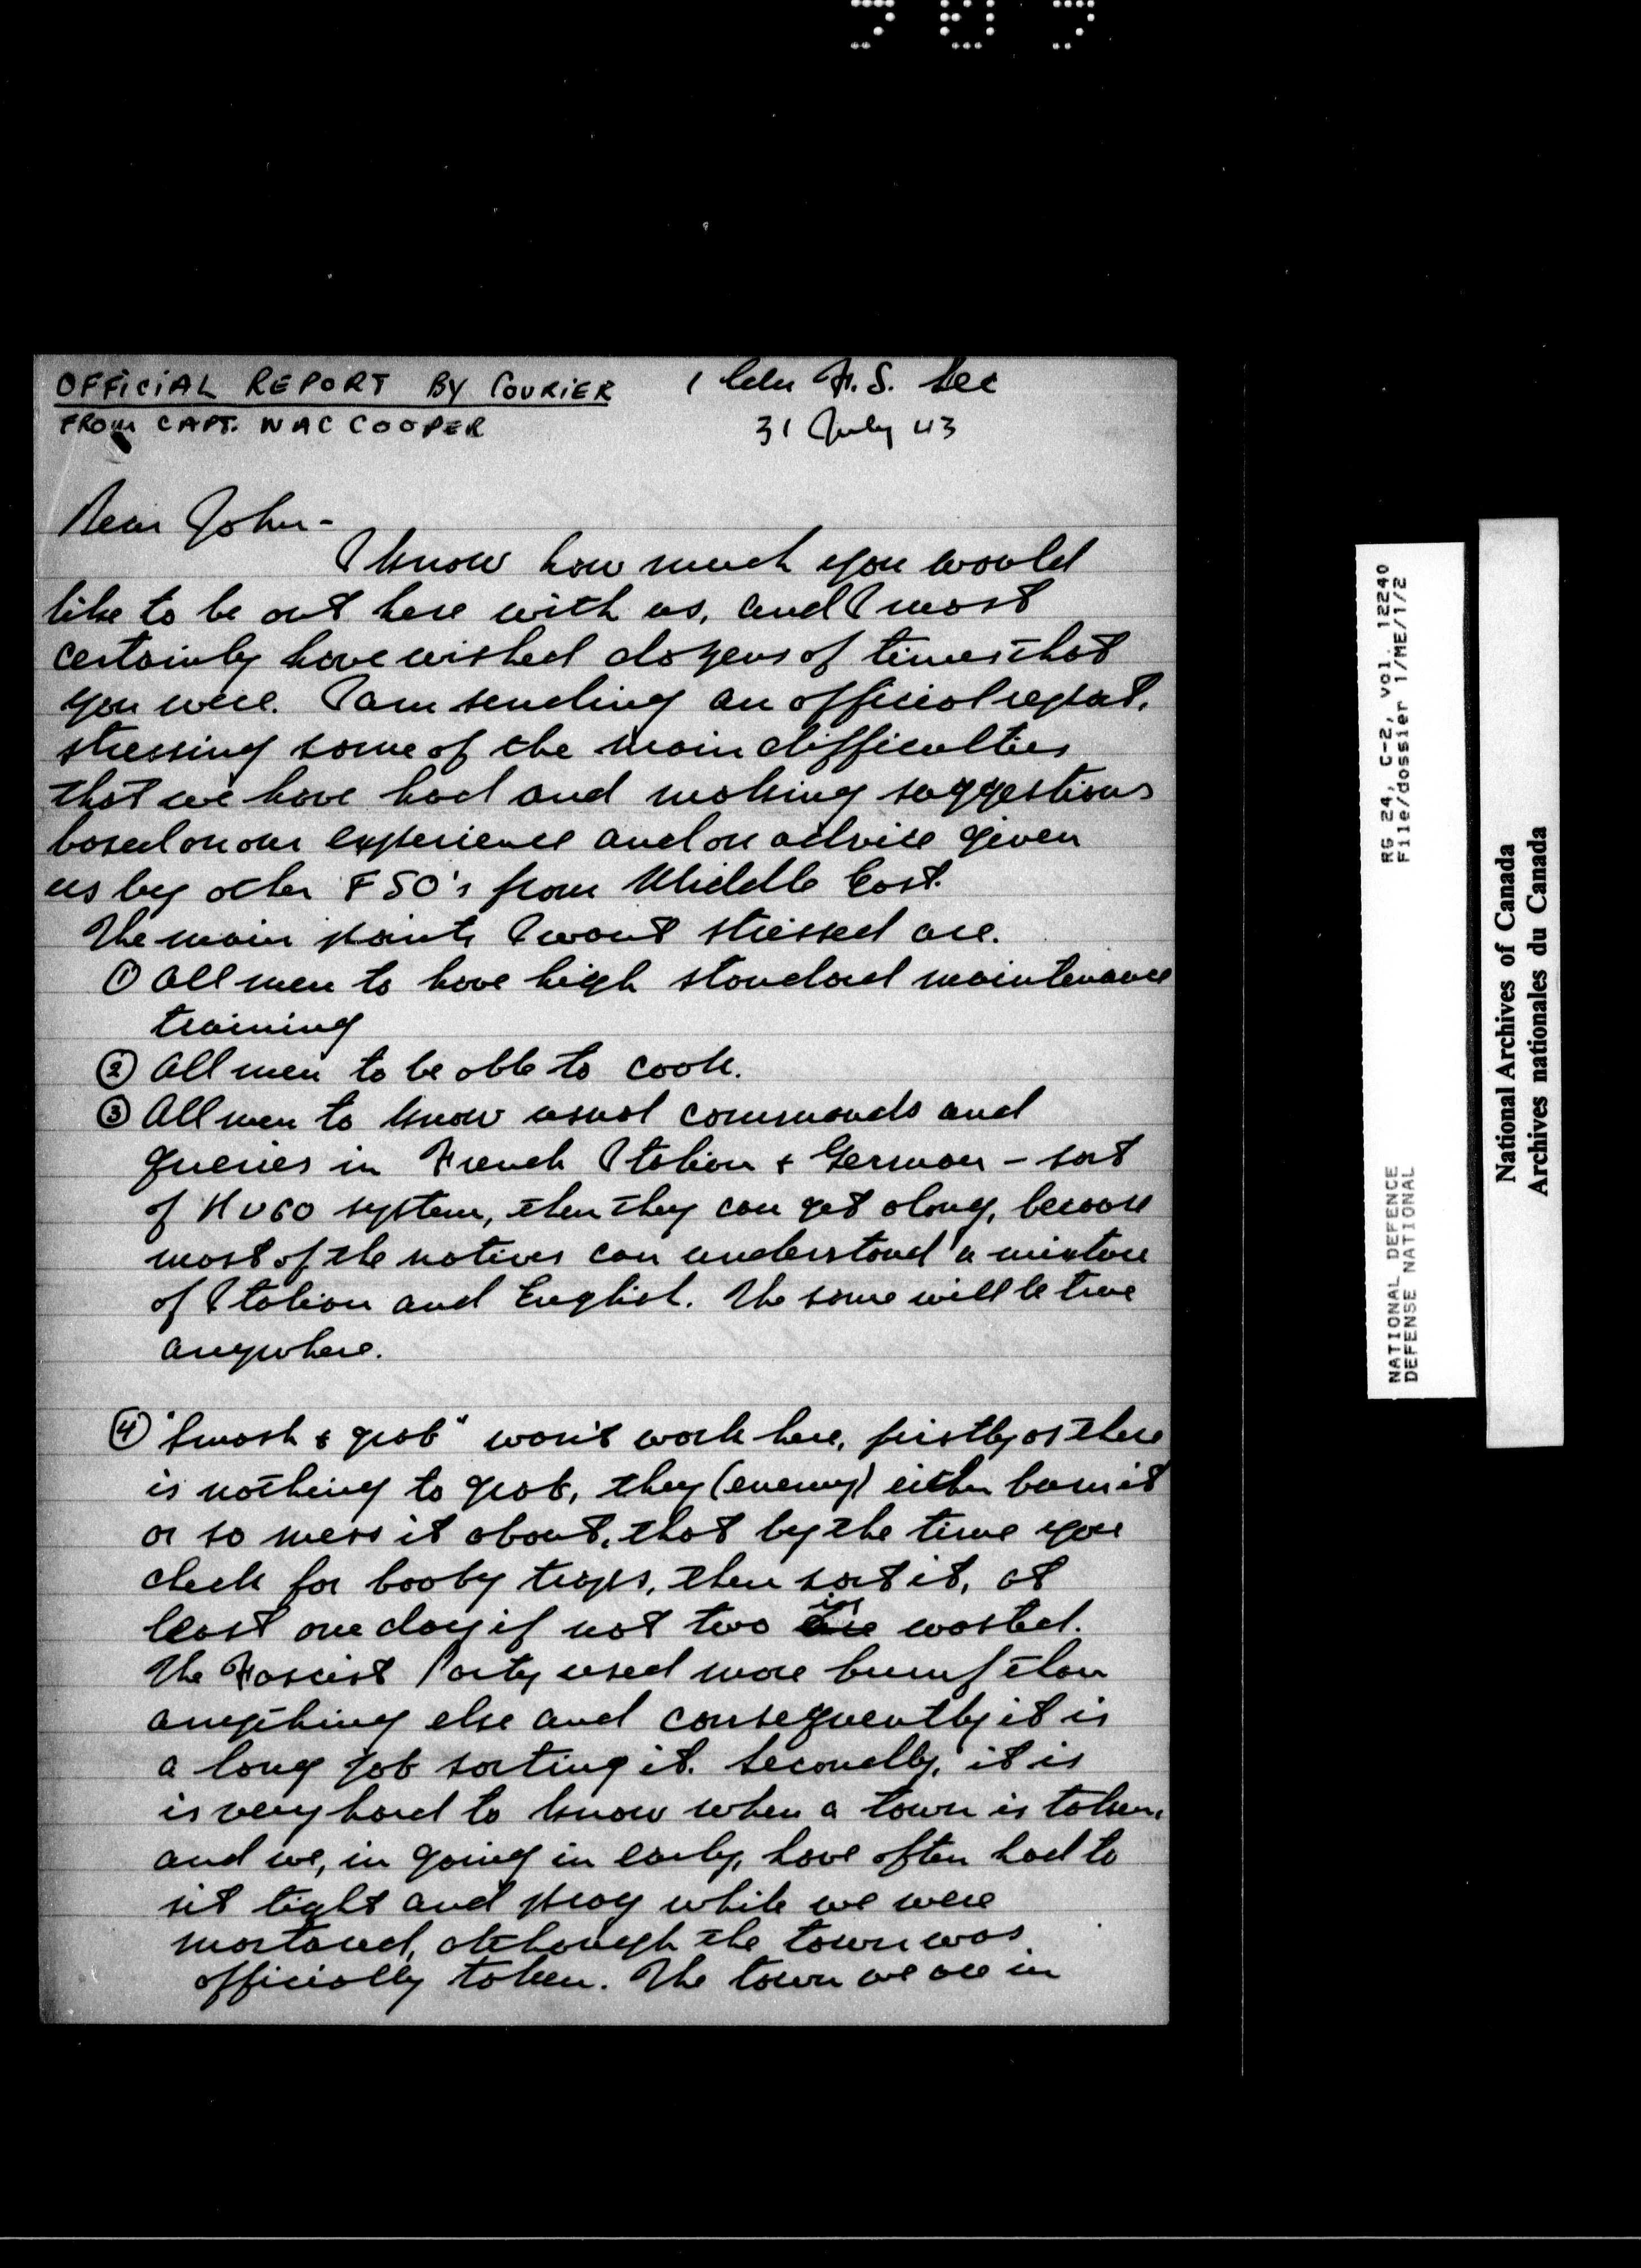 OFFICIAL REPORT BY COURIER
FROM CAPT. WAC COOPER
1 Cdn F.S. Sec
31 July 43
Dear John -
I know how much you would
like to be out here with us, and I most
certainly have wished dozens of times that
you were. I am sending an official report,
stressing some of the main difficulties
that we have had and making suggestions
based on our experience and on advice given
us by other FSO's from Middle East.
The main points I want stressed are.
① All men to have high standard maintenance
training
② All men to be able to cook.
③ All men to know usual commands and
queries in French Italian & German - sort
of HUGO system, then they can get along, because
most of the natives can understand a mixture
of Italian and English. The same will be true
anywhere.
④ "Smash & grab" won't work here, firstly as there
is nothing to grab, they (enemy) either burn it
or so mess it about, that by the time you
check for booby traps, then sort it, at
least one day if not two is wasted.
The Fascist Party used more bumf than
anything else and consequently it is
a long job sorting it. Secondly, it is
is very hard to know when a town is taken,
and we, in going in early, have often had to
sit tight and pray while we were
mortared, although the town was
officially taken. The town we are in
NATIONAL DEFENCE
DEFENSE NATIONAL
RG 24, C-2, vol. 12240
File/dossier 1/ME/1/2
National Archives of Canada
Archives nationales du Canada